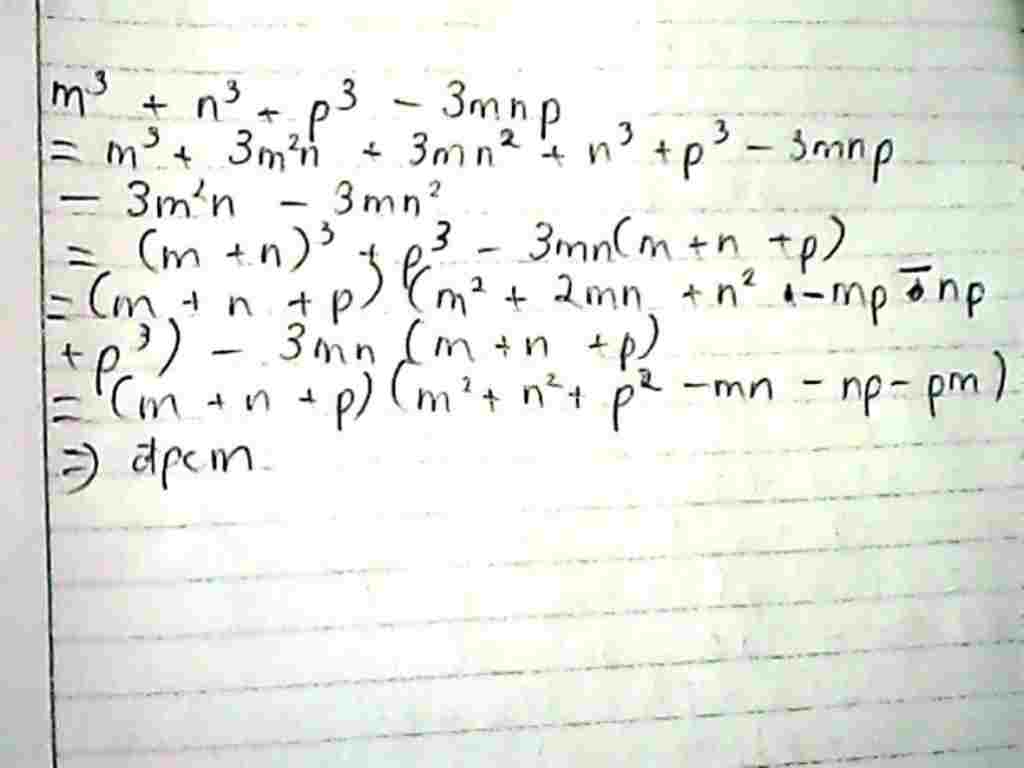 m³ + n³ + p³ - 3mnp
= m³ + 3m²n + 3mn² + n³ + p³ - 3mnp
- 3m²n - 3mn²
= (m + n)³ + p³ - 3mn(m + n + p)
= (m + n + p) (m² + 2mn + n² - mp - np
+ p³) - 3mn (m + n + p)
= (m + n + p) (m² + n² + p² - mn - np - pm)
=> đpcm